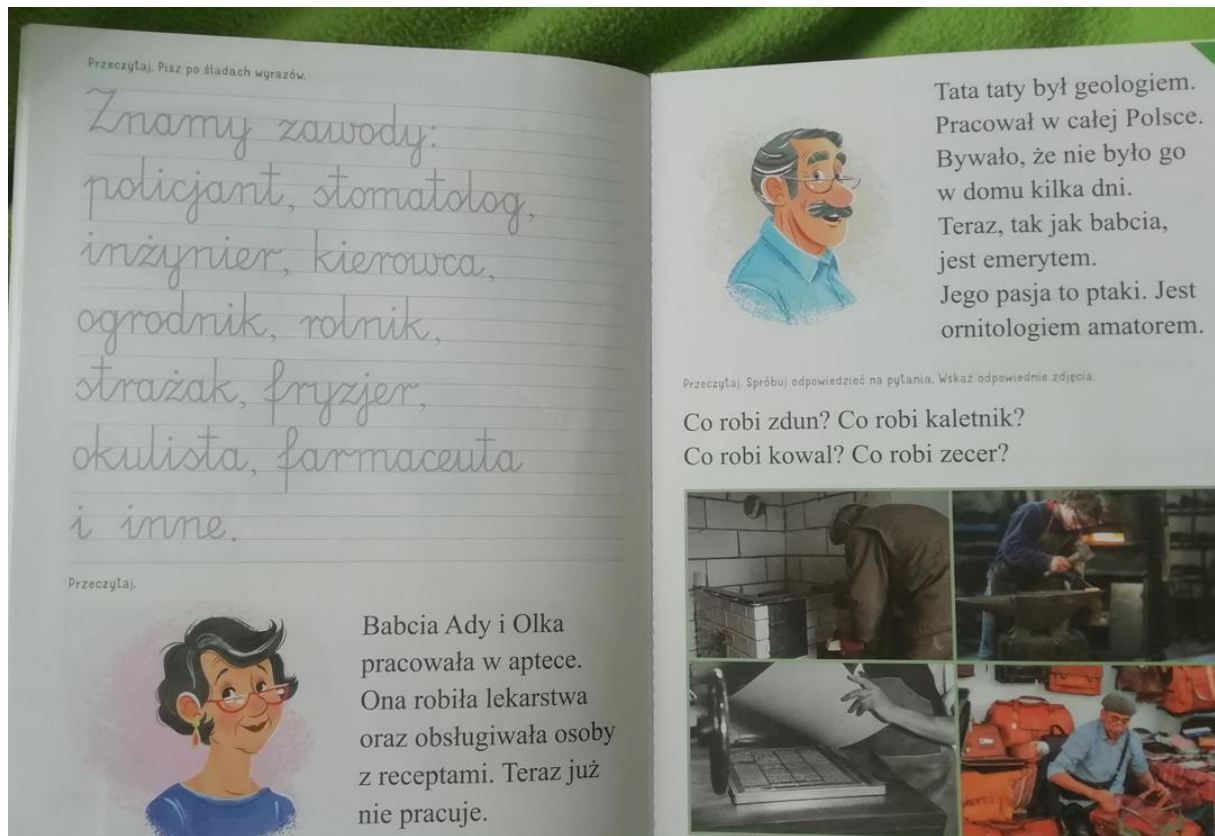 Przeczytaj. Pisz po śladach wyrazów.
Znamy zawody:
policjant, stomatolog,
inżynier, kierowca,
ogrodnik, rolnik,
strażak, fryzjer,
okulista, farmaceuta
i inne.
Przeczytaj.
Babcia Ady i Olka
pracowała w aptece.
Ona robiła lekarstwa
oraz obsługiwała osoby
z receptami. Teraz już
nie pracuje.
Tata taty był geologiem.
Pracował w całej Polsce.
Bywało, że nie było go
w domu kilka dni.
Teraz, tak jak babcia,
jest emerytem.
Jego pasja to ptaki. Jest
ornitologiem amatorem.
Przeczytaj. Spróbuj odpowiedzieć na pytania. Wskaż odpowiednie zdjęcia.
Co robi zdun? Co robi kaletnik?
Co robi kowal? Co robi zecer?